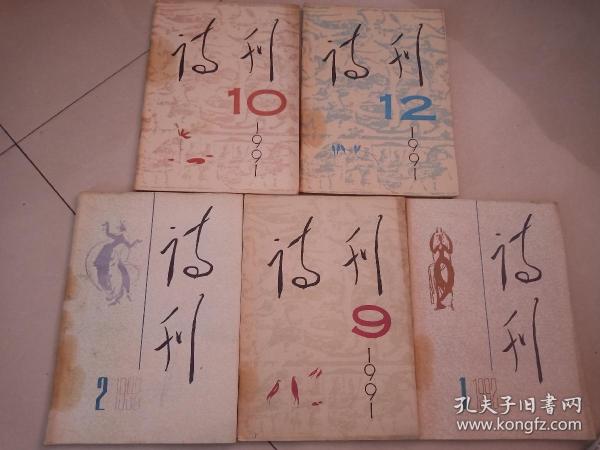 诗刊
10
1991
诗刊
12
1991
诗
刊
2
诗刊
9
1991
诗
刊
1
孔夫子旧书网
www.kongfz.com